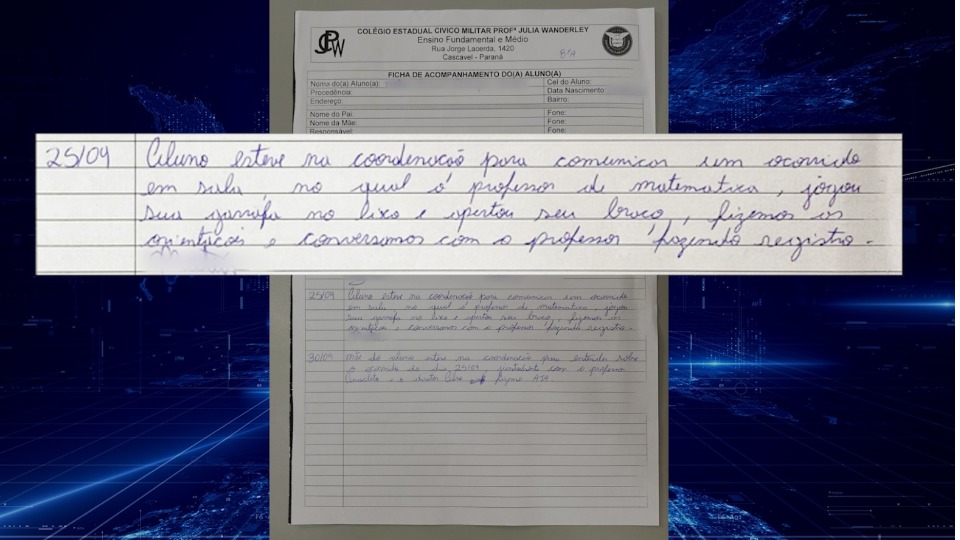 COLÉGIO ESTADUAL CÍVICO MILITAR PROFª JULIA WANDERLEY
Ensino Fundamental e Médio
Rua Jorge Lacerda, 1420
Cascavel - Paraná
8ºA
FICHA DE ACOMPANHAMENTO DO(A) ALUNO(A)
Nome do(a) Aluno(a): Cel do Aluno:
Procedência: Data Nascimento
Endereço: Bairro:
Nome do Pai: Fone:
Nome da Mãe: Fone:
Responsável: Fone:
25/09 Aluno esteve na coordenação para comunicar um ocorrido
em sala, no qual o professor de matematica, jogou
sua garrafa no lixo e apertou seu braço, fizemos as
orientações e conversamos com o professor fazendo registro.
25/09 Aluno esteve na coordenação para comunicar um ocorrido
em sala no qual o professor de matematica, jogou
sua garrafa no lixo e apertou seu braço, fizemos as
orientações e conversamos com o professor fazendo registro.
30/09 Mãe do aluno esteve na coordenação para entender sobre
o ocorrido do dia 25/09 juntamente com o professor
e o diretor